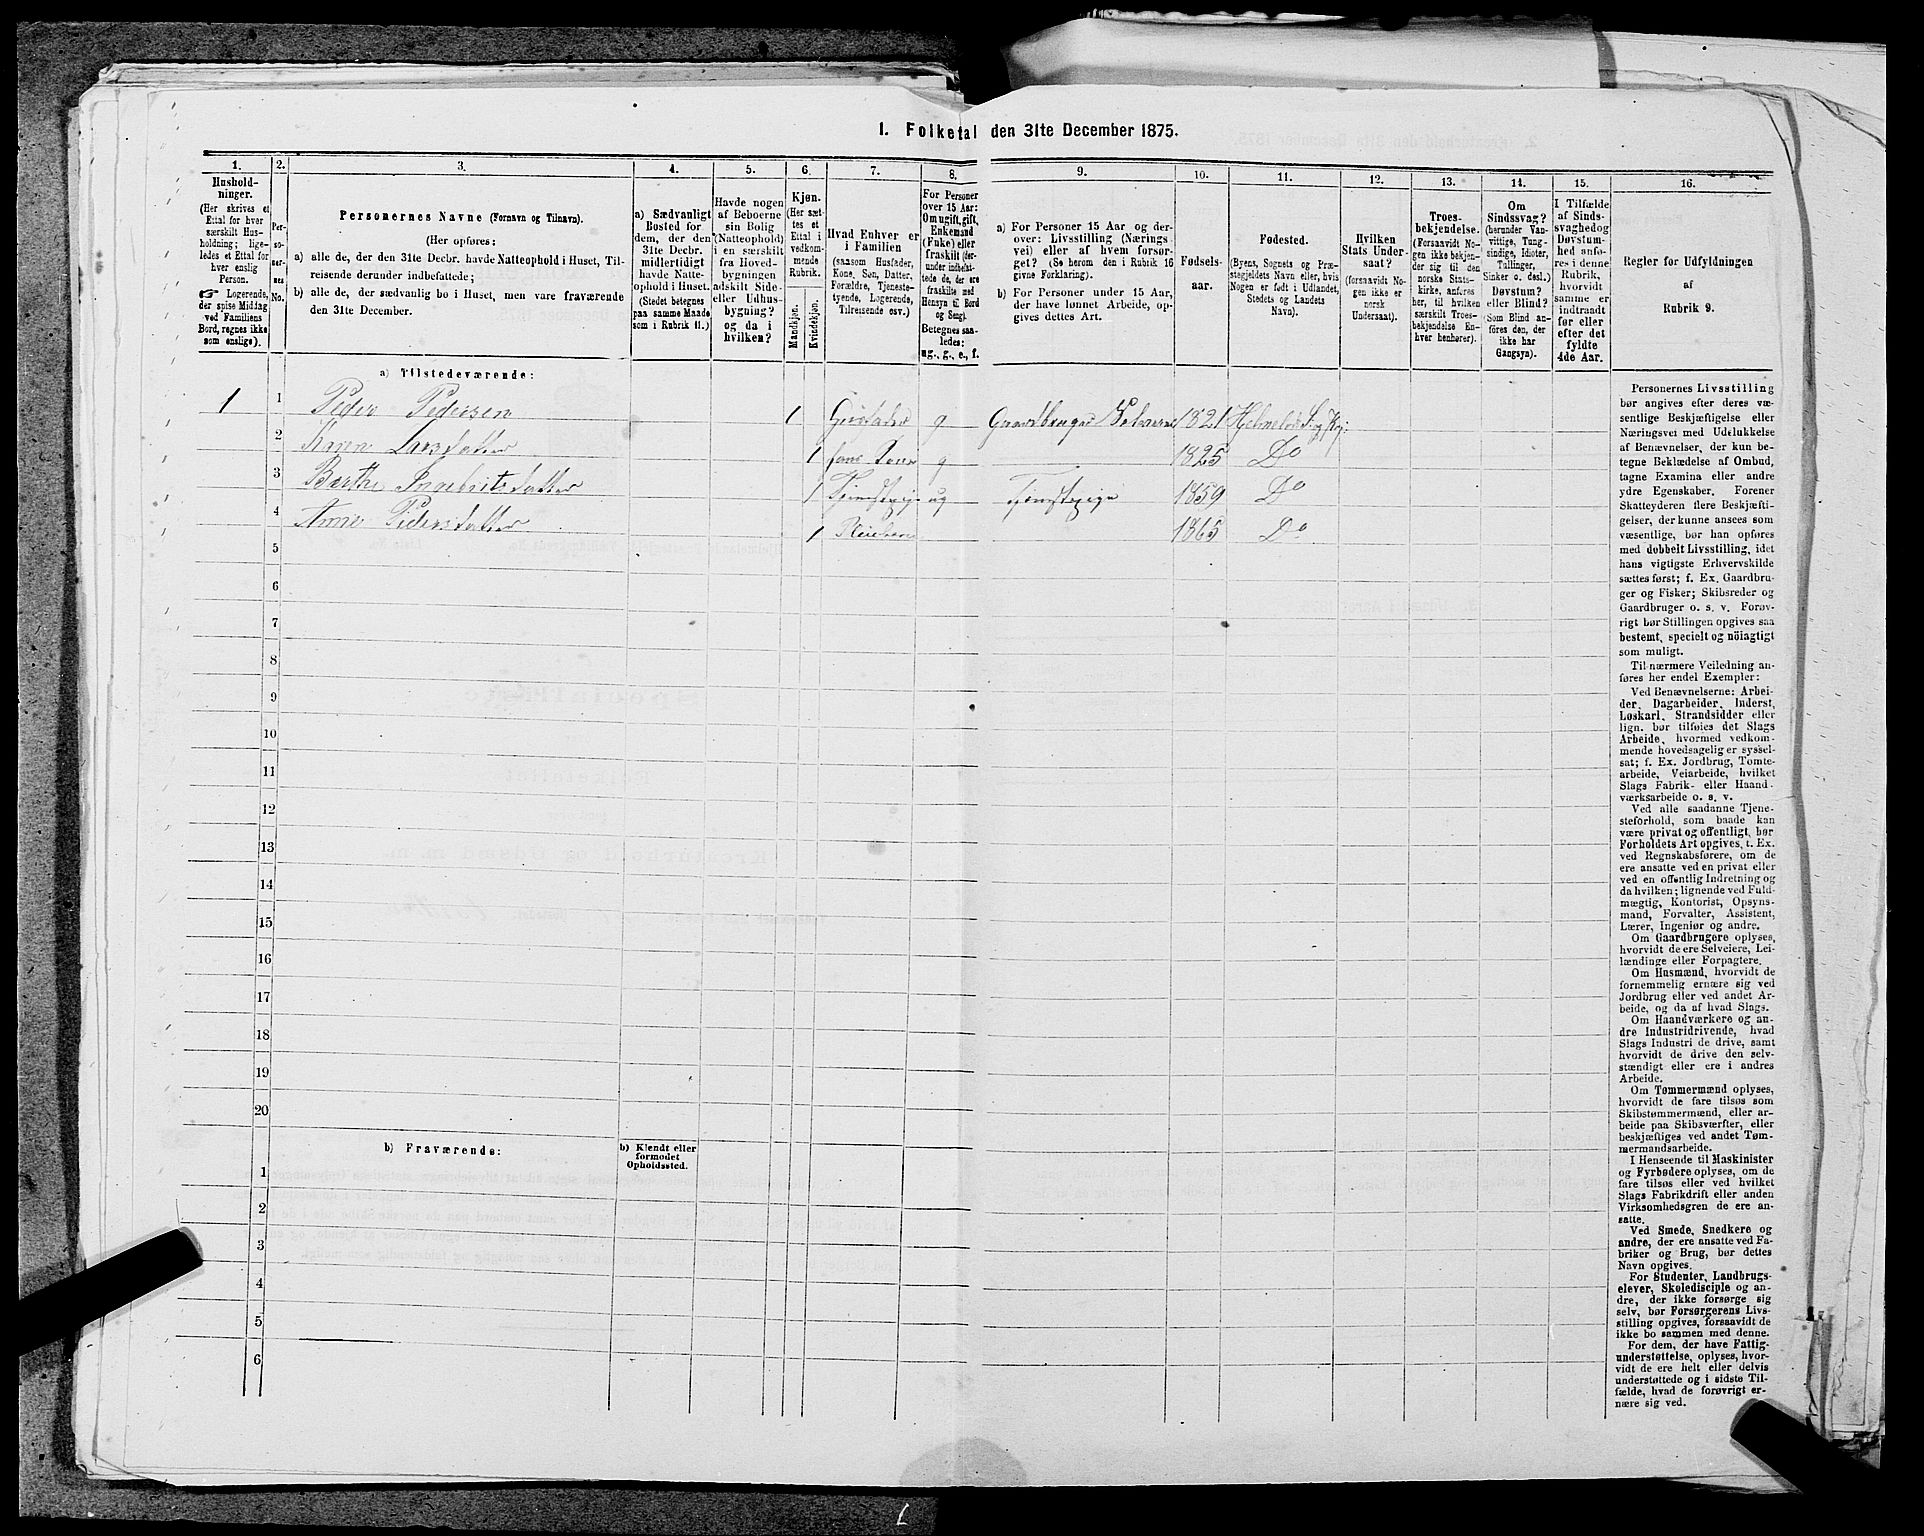 1. Folketal den 31te December 1875.
1.
2.
3.
4.
5.
6.
7.
8.
9.
10.
11.
12.
13.
14.
15.
16.
Hushold-
ninger.
(Her skrives et
Ettal for hver
særskilt Hus-
holdning; lige-
ledes et Ettal for
hver enslig
Person.
☞ Logerende,
der spise Middag
ved Familiens
Bord, regnes ikke
som enslige).
Per-
so-
ner-
nes
No.
Personernes Navne (Fornavn og Tilnavn).
(Her opføres:
a) alle de, der den 31te Decbr. havde Natteophold i Huset, Til-
reisende derunder indbefattede;
b) alle de, der sædvanlig bo i Huset, men vare fraværende
den 31te December.
a) Sædvanligt
Bosted for
dem, der den
31te Decbr.
midlertidigt
havde Natte-
ophold i Huset.
(Stedet betegnes
paa samme Maade
som i Rubrik 11.)
Havde nogen
af Beboerne
sin Bolig
(Natteophold)
i en særskilt
fra Hoved-
bygningen
adskilt Side-
eller Udhus-
bygning?
og da i
hvilken?
Kjøn.
(Her sæt-
tes et
Ettal i
vedkom-
mende
Rubrik.
Mandkjøn.
Kvindekjøn.
Hvad Enhver er
i Familien
(saasom Husfader,
Kone, Søn, Datter,
Forældre, Tjeneste-
tyende, Logerende,
Tilreisende osv.)
For Personer
over 15 Aar:
Om ugift, gift,
Enkemand
(Enke) eller
fraskilt (der-
under indbefat-
tede de, der ere
fraskilte med
Hensyn til Bord
og Seng).
Betegnes saa-
ledes:
ug., g., e., f.
a) For Personer 15 Aar og der-
over: Livsstilling (Nærings
vei) eller af hvem forsør-
get? (Se herom den i Rubrik 16
givne Forklaring).
b) For Personer under 15 Aar,
der have lønnet Arbeide, op-
gives dettes Art.
Fødsels-
aar.
Fødested.
(Byens, Sognets og Præ-
stegjeldets Navn eller, hvis
Nogen er født i Udlandet,
Stedets og Landets
Navn).
Hvilken
Stats Under-
saat?
(forsaavidt No-
gen ikke er
norsk
Undersaat).
Troes-
bekjendelse.
(Forsaavidt No-
gen ikke bekjen-
der sig til den
norske Stats-
kirke, anføres
her, til hvilken
særskilt Troes-
bekjendelse En-
hver henhører).
Om
Sindssvag?
(herunder Van-
vittige, Tung-
sindige, Idioter,
Tullinger,
Sinker o. desl.)
Døvstum?
eller Blind?
(Som Blind an-
føres den, der
ikke har
Gangsyn).
I Tilfælde
af Sinds-
svaghed og
Døvstum-
hed anfø-
res i denne
Rubrik,
hvorvidt
samme er
indtraadt
før eller
efter det
fyldte
4de Aar.
Regler for Udfyldningen
af
Rubrik 9.
a) Tilstedeværende:
1 1 Peder Pedersen 1 Husfader g Gaardbruger Selveier 1821
2 Karen Larsdatter 1 hans Kone g 1825 Do
3 Berthe Ingebritsdatter 1 Tjenstepige ug Tjenstepige 1859 Do
4 Anne Pedersdatter 1 Pleiebarn 1865 Do
5
6
7
8
9
10
11
12
13
14
15
16
17
18
19
20
b) Fraværende:
b) Kjendt eller
formodet
Opholdssted.
1
2
3
4
5
6
Personernes Livsstilling
bør angives efter deres væ-
sentlige Beskjæftigelse eller
Næringsvei med Udelukkelse
af Benævnelser, der kun be-
tegne Beklædelse af Ombud,
tagne Examina eller andre
ydre Egenskaber. Forener
Skatteyderen flere Beskjæfti-
gelser, der kunne ansees som
væsentlige, bør han opføres
med dobbelt Livsstilling, idet
hans vigtigste Erhvervskilde
sættes først; f. Ex. Gaardbru-
ger og Fisker; Skibsreder og
Gaardbruger o. s. v. Forøv-
rigt bør Stillingen opgives saa
bestemt, specielt og nöiagtigt
som muligt.
Til nærmere Veiledning an-
føres her endel Exempler:
Ved Benævnelserne: Arbei-
der, Dagarbeider, Inderst,
Løskarl, Strandsidder eller
lign. bør tilføies det Slags
Arbeide, hvormed vedkom-
mende hovedsagelig er syssel-
sat; f. Ex. Jordbrug, Tomte-
arbeide, Veiarbeide, hvilket
Slags Fabrik- eller Haand-
værksarbeide o. s. v.
Ved alle saadanne Tjene-
steforhold, som baade kan
være privat og offentligt, bør
Forholdets Art opgives, t. Ex.
ved Regnskabsførere, om de
ere ansatte ved en privat eller
ved en offentlig Indretning og
da hvilken; lignende ved Fuld-
mægtig, Kontorist, Opsyns-
mand, Forvalter, Assistent,
Lærer, Ingeniør og andre.
Om Gaardbrugere oplyses,
hvorvidt de ere Selveiere, Lei-
lændinge eller Forpagtere.
Om Husmænd, hvorvidt de
fornemmelig ernære sig ved
Jordbrug eller ved andet Ar-
beide, og da af hvad Slags.
Om Haandværkere og an-
dre Industridrivende, hvad
Slags Industri de drive, samt
hvorvidt de drive den selv-
stændigt eller ere i andres
Arbeide.
Om Tømmermænd oplyses,
hvorvidt de fare tilsøs som
Skibstømmermænd, eller ar-
beide paa Skibsværfter, eller
beskjæftiges ved andet Tøm-
mermandsarbeide.
I Henseende til Maskinister
og Fyrbødere oplyses, om de
fare tilsøs eller ved hvilket
Slags Fabrikdrift eller anden
Virksomhedsgren de ere an-
satte.
Ved Smede, Snedkere og
andre, der ere ansatte ved Fa-
briker og Brug, bør dettes
Navn opgives.
For Studenter, Landbrugs-
elever, Skoledisciple og an-
dre, der ikke forsørge sig
selv, bør Forsørgerens Livs-
stilling opgives, forsaavidt de
ikke bo sammen med denne.
For dem, der have Fattig-
understøttelse, oplyses, hvor-
vidt de ere helt eller delvis
understøttede og i sidste Til-
fælde, hvad de forøvrigt er-
nære sig ved.